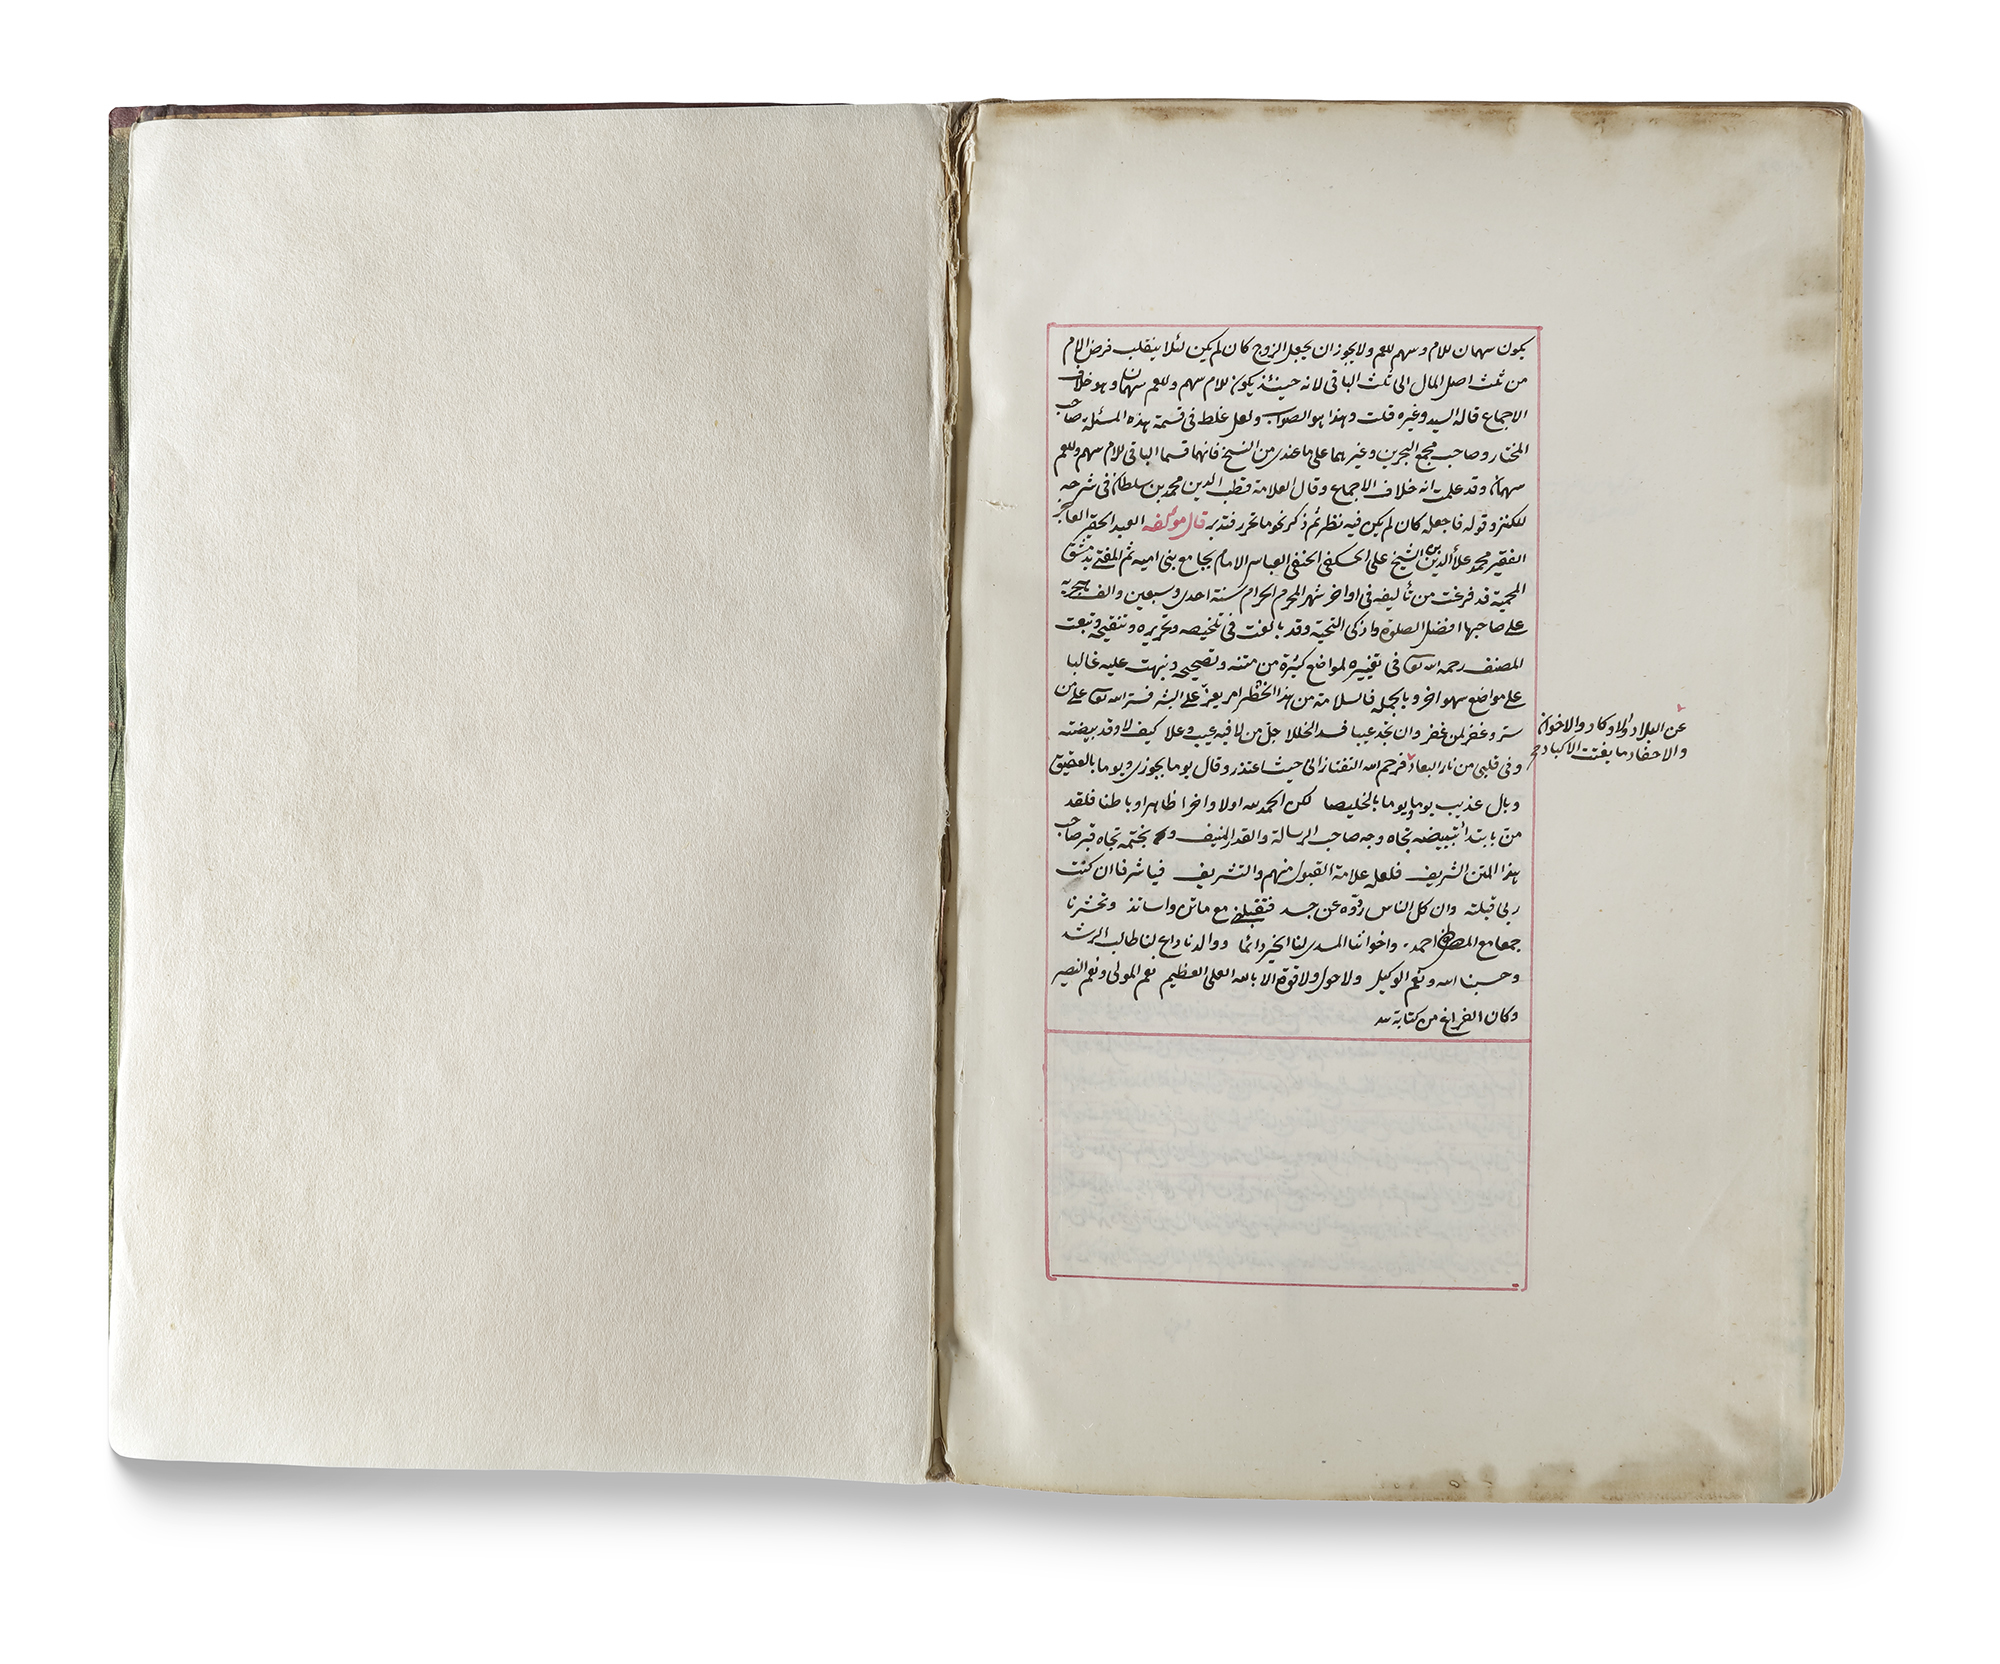 يكون سهمان للام وسهم للعم ولا يجوز ان يجعل الزوج كان لم يكن لئلا ينقلب فرض الام
من ثلث اصل المال الى ثلث الباقى لانه حينئذ يكون للام سهم وللعم سهمان وهو خلاف
الاجماع قاله السيد وغيره قلت وهذا هو الصواب ولعل غلط فى قسمة هذه المسئلة صاحب
المختار وصاحب مجمع البحرين وغيرهما على ما عندى من النسخ فانهما قسما الباقى للام سهم وللعم
سهمان وقد علمت انه خلاف الاجماع وقال العلامة قطب الدين محمد بن سلطان فى شرحه
للكنز وقوله فاجعله كان لم يكن فيه نظر ثم ذكر نحو ما تحرر فتدبر قال مؤلفه العبد الحقير العاجز
الفقير محمد علأ الدين بن الشيخ على الحصكفى الحنفى العباسى الامام بجامع بنى اميه ثم المفتى بدمشق
المحمية قد فرغت من تأليفه فى اواخر شهر المحرم الحرام سنة احدى وسبعين والف هجريه
على صاحبها افضل الصلوة وازكى التحية وقد بالغت فى تلخيصه وتحريره وتنقيحه وتبعت
المصنف رحمه الله تعا فى تغييره لمواضع كثيرة من متنه وتصحيحه ونبهت عليه غالبا
على مواضع سهو اخر وبالجملة فالسلامة من هذا الخطر امر يعز على البشر فستر الله تعا على من
ستر وغفر لمن غفر وان تجد عيبا فسد الخللا جل من لا فيه عيب وعلا كيف لا وقد بيضته
وفى قلبى من نار البعاد فرحم الله التفتازانى حيث اعتذر وقال يوما بجوزى ويوما بالعقيق
وبال عذيب يوما ويوما بالخليصا لكن الحمد لله اولا واخرا ظاهرا وباطنا فلقد
من بابتدأ تبييضه تجاه وجه صاحب الرسالة والقدر المنيف و بختمه تجاه قبر صاحب
هذا المتن الشريف فلعله علامة القبول منهم والتشريف فيا شرفا ان كنت
ربى قبلته وان كل الناس ردوه عن حسد فتقبله مع ماتن واساتذ وتحشرنا
جمعا مع المصطفى احمد واخواننا المسدى لنا الخير دائما ووالدنا داع لنا طالب الرشد
وحسبنا الله ونعم الوكيل ولا حول ولا قوة الا بالله العلى العظيم نعم المولى ونعم النصير
وكان الفراغ من كتابة
عن البلاد والاولاد والاخوان
والاحفاد ما يفتت الاكباد صح